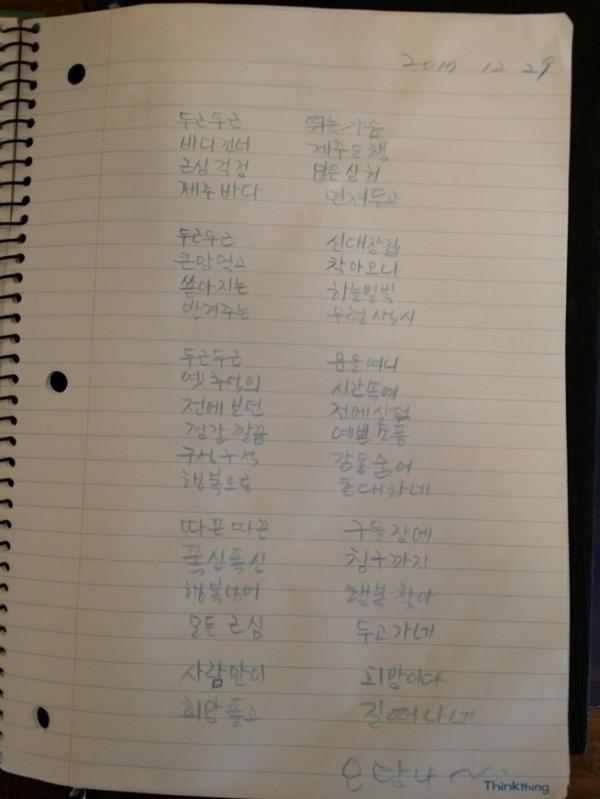 2017 12 29
두근두근 뛰는 가슴
바다건너 제주도행
근심 걱정 많은 상처
제주바다 던져두고
두근두근
큰맘먹고 찾아오니
쏟아지는 하늘별빛
반겨주는
두근두근 문을여니
옛추억의 시간속에
전에보던 전에살던
정갈 깔끔 예쁜소품
구석구석 감동숨어
행복으로 초대하네
따끈따끈 구들장에
폭신폭신 침구까지
행복찾아
모든근심 두고가네
사람만이 희망이다
희망품고 길떠나네
Thinkthing